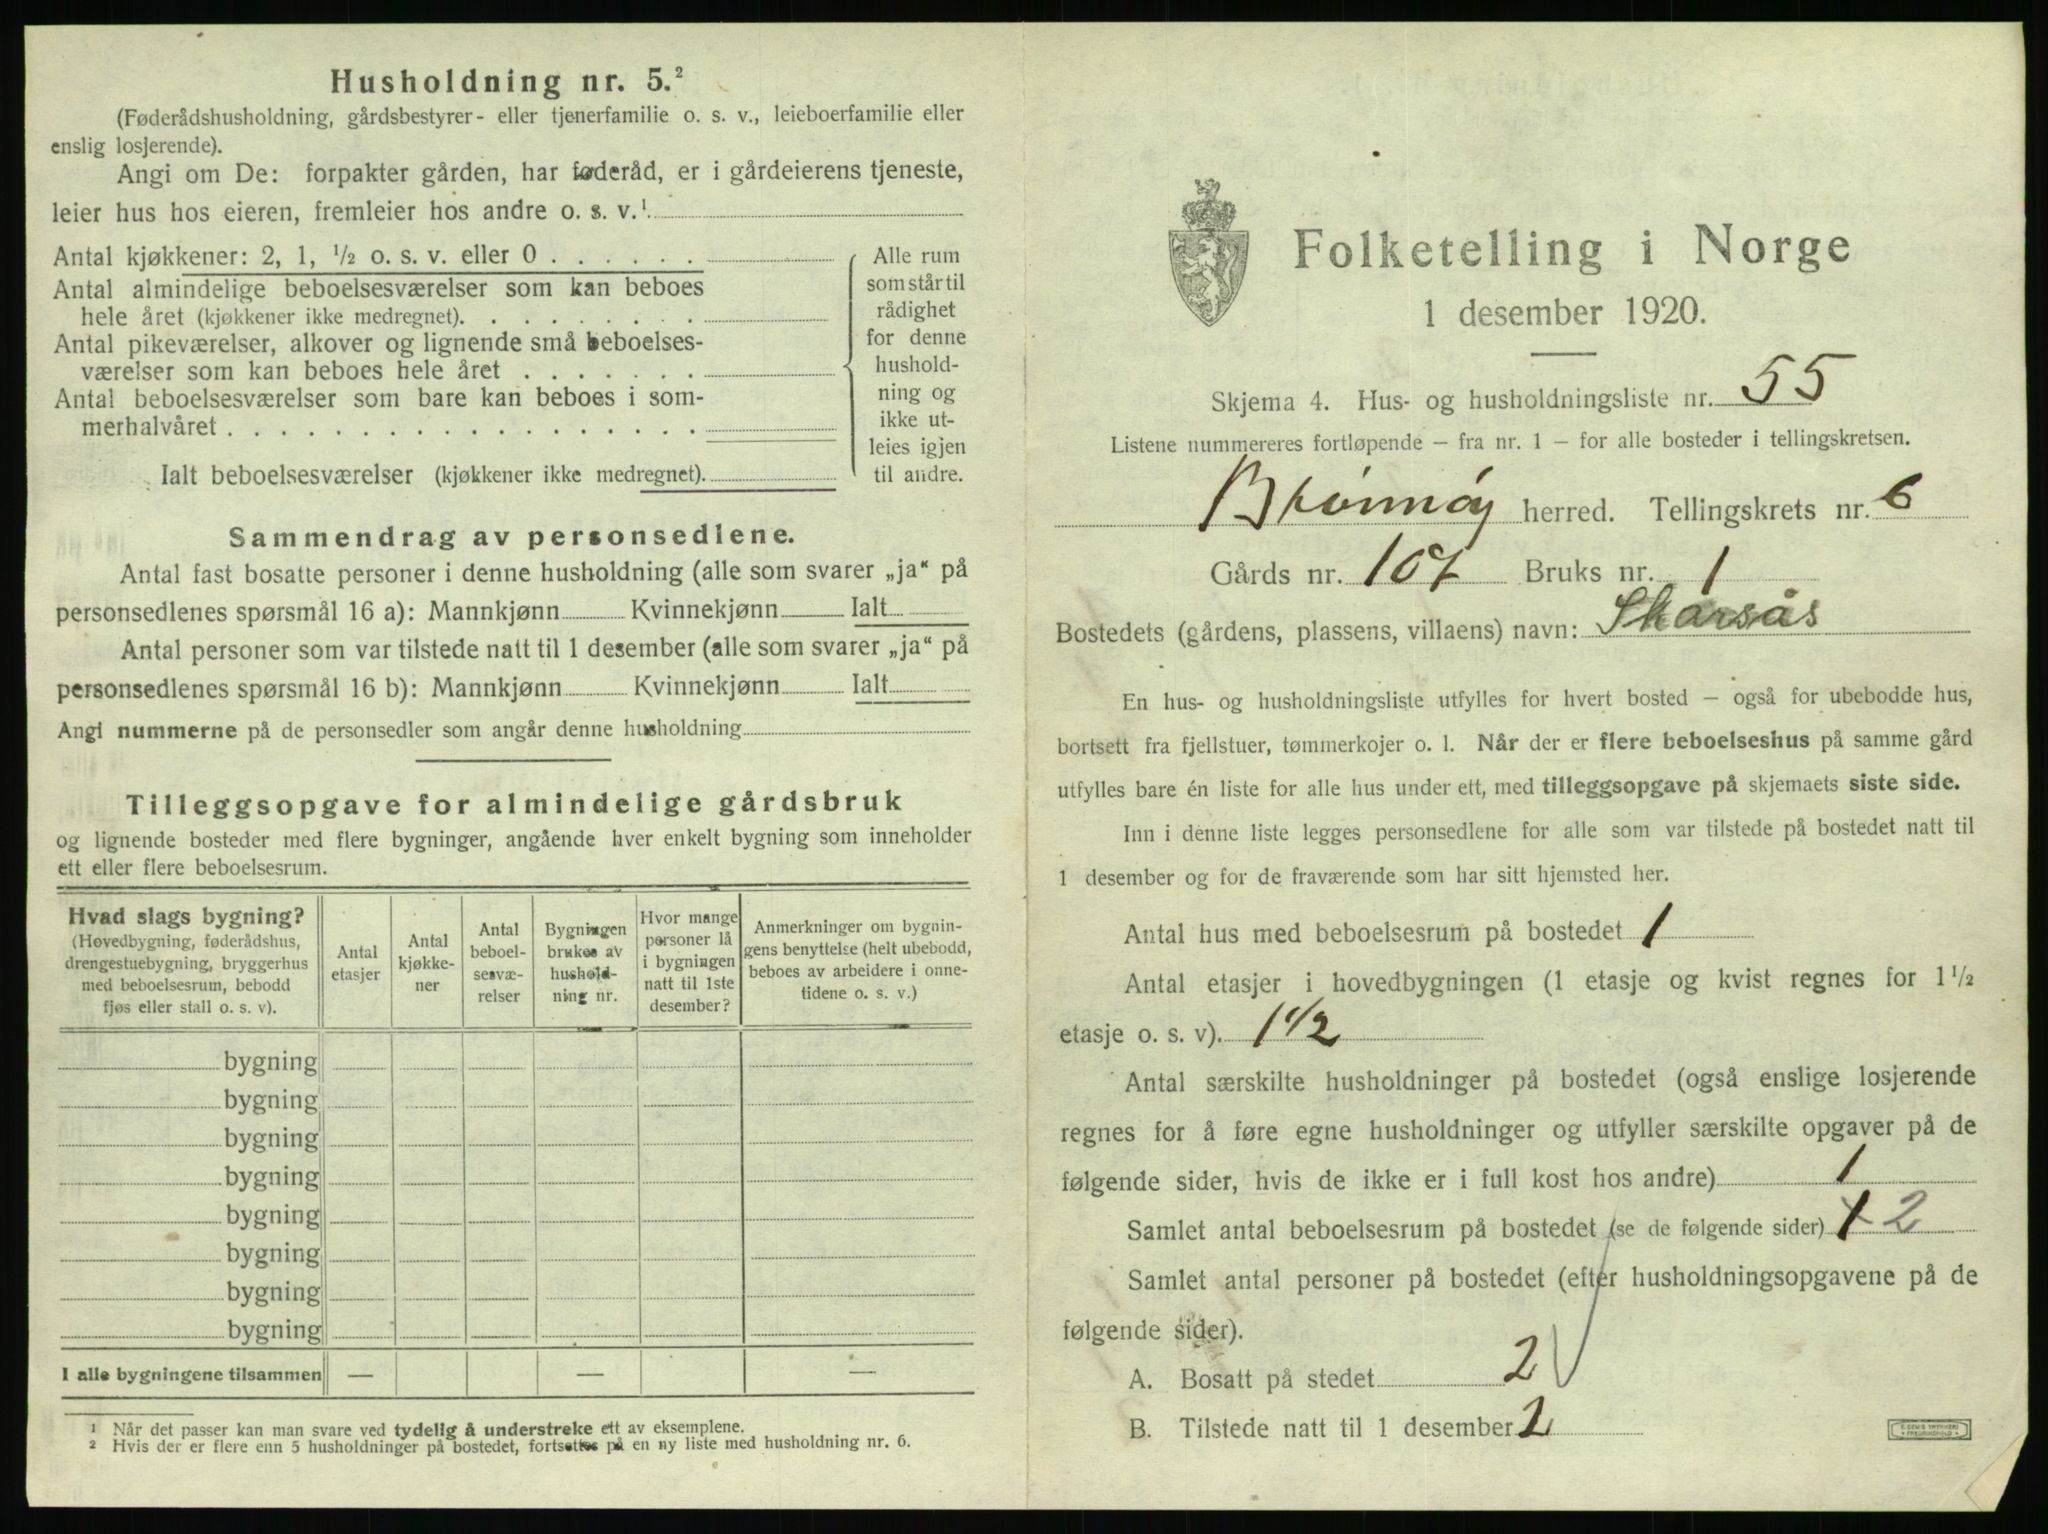 Husholdning nr. 5.²
(Føderådshusholdning, gårdsbestyrer- eller tjenerfamilie o. s. v., leieboerfamilie eller
enslig losjerende).
Angi om De: forpakter gården, har føderåd, er i gårdeierens tjeneste,
leier hus hos eieren, fremleier hos andre o. s. v.¹
Antal kjøkkener: 2, 1, ½ o. s. v. eller 0 . . . . . .
Antal almindelige beboelsesværelser som kan beboes
hele året (kjøkkener ikke medregnet). . . . . . . . .
Antal pikeværelser, alkover og lignende små beboelses-
værelser som kan beboes hele året . . . . . . .
Antal beboelsesværelser som bare kan beboes i som-
merhalvåret . . . . . . . . . . . . . . . . . .
Ialt beboelsesværelser (kjøkkener ikke medregnet).
Alle rum
som står til
rådighet
for denne
hushold-
ning og
ikke ut-
leies igjen
til andre.
Sammendrag av personsedlene.
Antal fast bosatte personer i denne husholdning (alle som svarer „ja“ på
personsedlenes spørsmål 16 a): Mannkjønn Kvinnekjønn Ialt
Antal personer som var tilstede natt til 1 desember (alle som svarer „ja“ på
personsedlenes spørsmål 16 b): Mannkjønn Kvinnekjønn Ialt
Angi nummerne på de personsedler som angår denne husholdning
Tilleggsopgave for almindelige gårdsbruk
og lignende bosteder med flere bygninger, angående hver enkelt bygning som inneholder
ett eller flere beboelsesrum.
Hvad slags bygning?
(Hovedbygning, føderådshus,
drengestuebygning, bryggerhus
med beboelsesrum, bebodd
fjøs eller stall o. s. v).
Antal
etasjer
Antal
kjøkke-
ner
Antal
beboel-
sesvæ-
relser
Bygningen
brukes av
hushold-
ning nr.
Hvor mange
personer lå
i bygningen
natt til 1ste
desember?
Anmerkninger om bygnin-
gens benyttelse (helt ubebodd,
beboes av arbeidere i onne-
tidene o. s. v.)
bygning
bygning
bygning
bygning
bygning
bygning
bygning
bygning
I alle bygningene tilsammen — — —
¹ Når det passer kan man svare ved tydelig å understreke ett av eksemplene.
² Hvis der er flere enn 5 husholdninger på bostedet, fortsettes på en ny liste med husholdning nr. 6.
Folketelling i Norge
1 desember 1920.
Skjema 4. Hus- og husholdningsliste nr. 55
Listene nummereres fortløpende – fra nr. 1 – for alle bosteder i tellingskretsen.
Brønnøy herred. Tellingskrets nr. 6
Gårds nr. 107 Bruks nr. 1
Bostedets (gårdens, plassens, villaens) navn: Skarsås
En hus- og husholdningsliste utfylles for hvert bosted – også for ubebodde hus,
bortsett fra fjellstuer, tømmerkojer o. l. Når der er flere beboelseshus på samme gård
utfylles bare én liste for alle hus under ett, med tilleggsopgave på skjemaets siste side.
Inn i denne liste legges personsedlene for alle som var tilstede på bostedet natt til
1 desember og for de fraværende som har sitt hjemsted her.
Antal hus med beboelsesrum på bostedet 1
Antal etasjer i hovedbygningen (1 etasje og kvist regnes for 1½
etasje o. s. v). 1 1/2
Antal særskilte husholdninger på bostedet (også enslige losjerende
regnes for å føre egne husholdninger og utfyller særskilte opgaver på de
følgende sider, hvis de ikke er i full kost hos andre) 1
Samlet antal beboelsesrum på bostedet (se de følgende sider) 1 2
Samlet antal personer på bostedet (efter husholdningsopgavene på de
følgende sider).
A. Bosatt på stedet 2
B. Tilstede natt til 1 desember 2